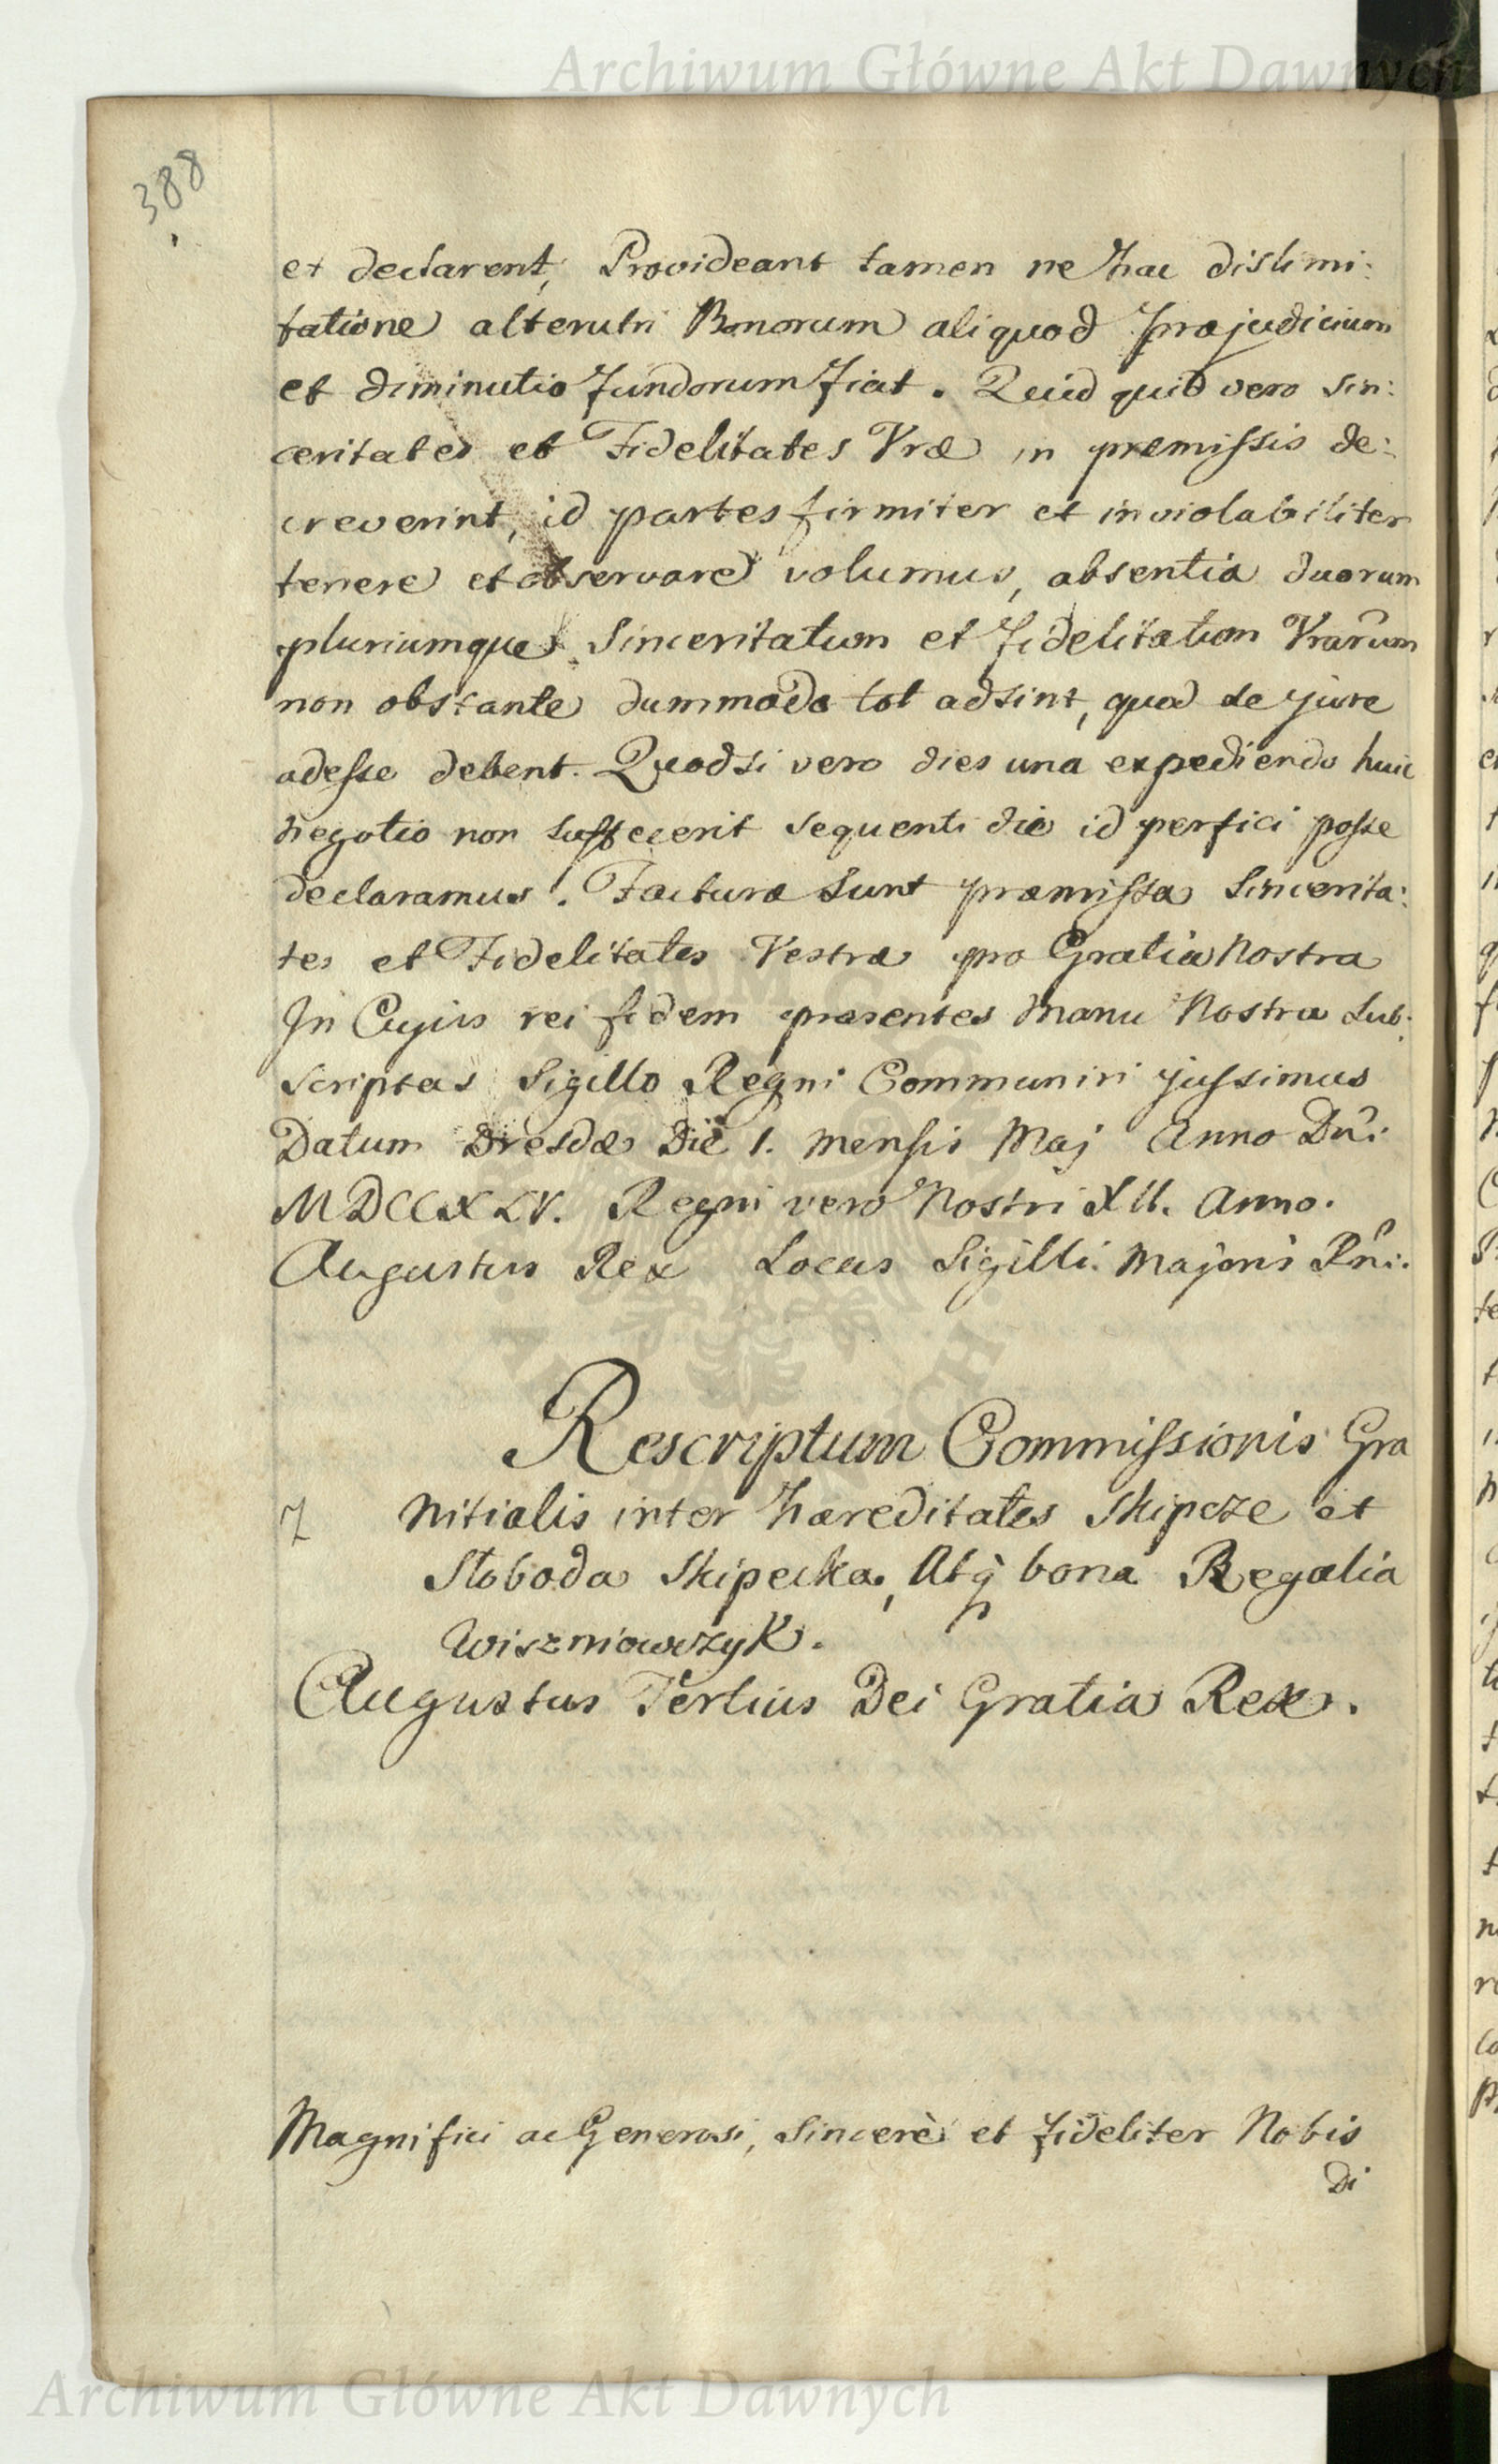 Archiwum Główne Akt Dawnych
388
et declarent, Provideant tamen ne hac dislimi:
tatione alterutri Bonorum aliquod præjudicium
et diminutio fundorum fiat. Quidquid vero Sin:
ceritates et Fidelitates Vræ in premissis de:
creverint, id partes firmiter et inviolabiliter
tenere et observare volumus, absentia duorum
pluriumque Sinceritatum et fidelitatum Vrarum
non obstante dummodo tot adsint, quod de jure
adesse debent. Quodsi vero dies una expediendo huic
negotio non suffecerit sequenti die id perfici posse
declaramus. Facturæ sunt præmissa Sincerita:
tes et Fidelitates Vestræ pro Gratia Nostra
In Cujus rei fidem præsentes Manu Nostra Sub:
scriptas Sigillo Regni Communiri jussimus
Datum Dresdæ Die 1. Mensis Maj Anno Dni:
MDCCXLV. Regni vero Nostri XII. Anno.
Augustus Rex Locus Sigilli Majoris Rni:
Rescriptum Commissionis Gra
7 nitialis inter hæreditates Skipcze et
Słoboda Skipecka, Atq bona Regalia
Wiszniowczyk.
Augustus Tertius Dei Gratia Rex.
Magnifici ac Generosi, Sincerè et fideliter Nobis
Di
Archiwum Główne Akt Dawnych